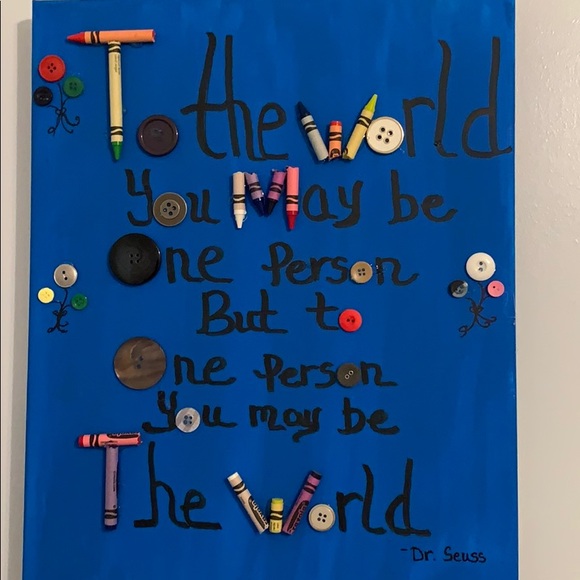 To the World
You May be
One Person
But to
One Person
You may be
The World
-Dr. Seuss